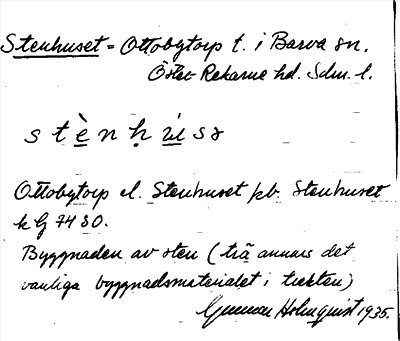 Stenhuset = Ottobytorp t. i Barva sn.
Öster Rekarne hd. Sdm. l.
stènhuss
Ottobytorp el. Stenhuset pb. Stenhuset
k G 74 80.
Byggnaden av sten (trä annars det
vanliga byggnadsmaterialet i trakten)
Gunnar Holmquist 1935.